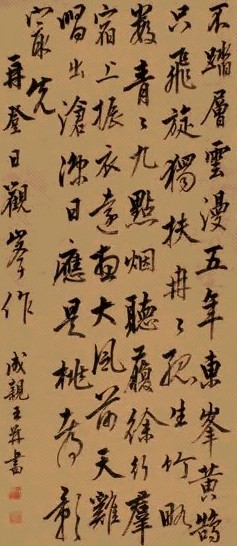 不踏層雲漫五年東峯黃鵠
只飛旋獨扶冉〻孤生竹略
數青〻九點烟聽履徐行羣
宿上振衣遠大風前天雞
唱出滄溟日應是桃都影
㝡先
再登日觀峯作
成親王并書